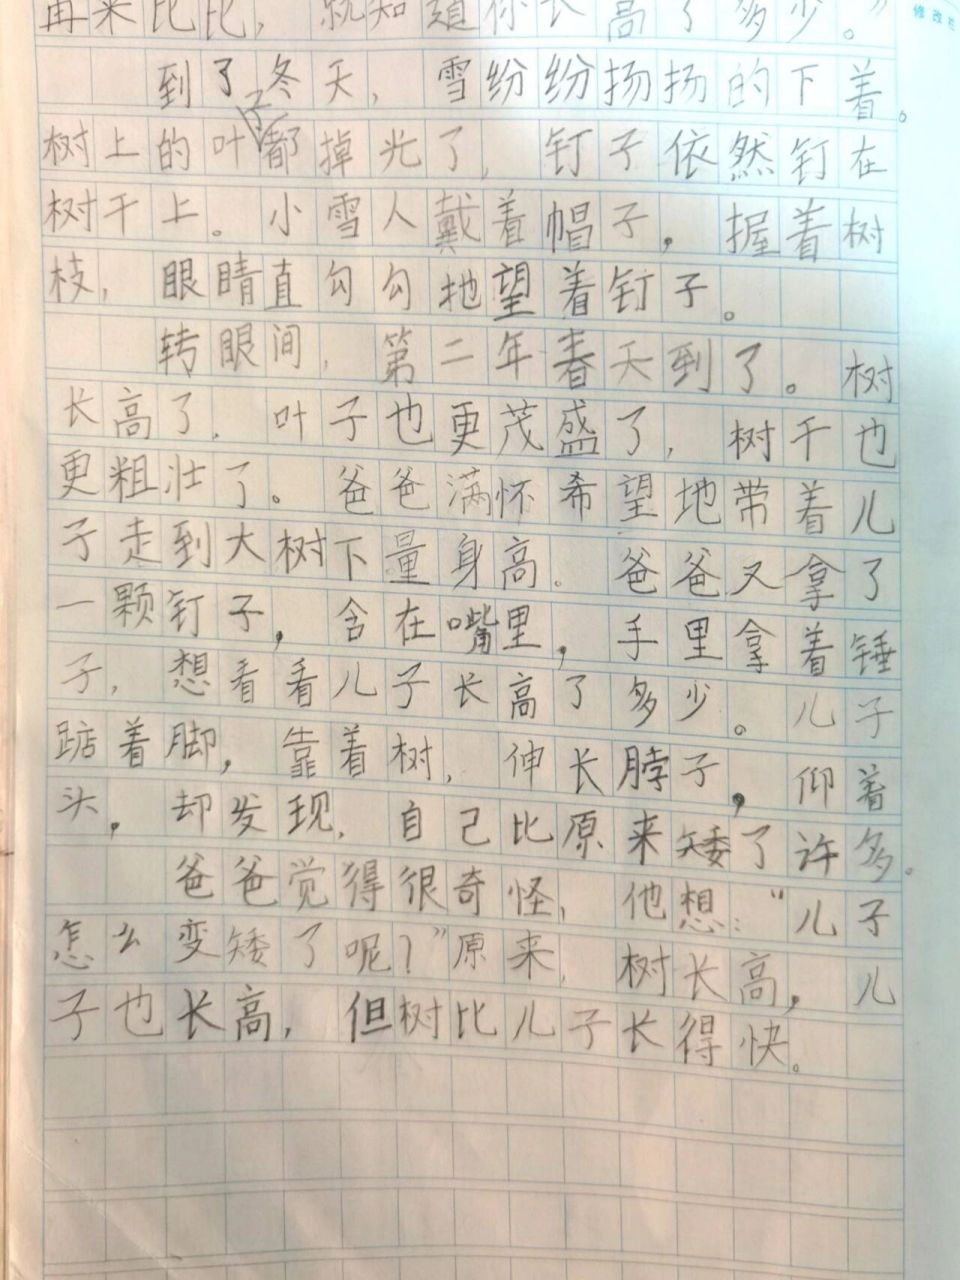 再来比比，就知道你长高了多少。”
修改栏
到了冬天，雪纷纷扬扬的下着。
树上的叶子都掉光了，钉子依然钉在
树干上。小雪人戴着帽子，握着树
枝，眼睛直勾勾地望着钉子。
转眼间，第二年春天到了。树
长高了，叶子也更茂盛了，树干也
更粗壮了。爸爸满怀希望地带着儿
子走到大树下量身高。爸爸又拿了
一颗钉子，含在嘴里，手里拿着锤
子，想看看儿子长高了多少。儿子
踮着脚，靠着树，伸长脖子，仰着
头，却发现，自己比原来矮了许多。
爸爸觉得很奇怪，他想：“儿子
怎么变矮了呢？”原来，树长高，儿
子也长高，但树比儿子长得快。